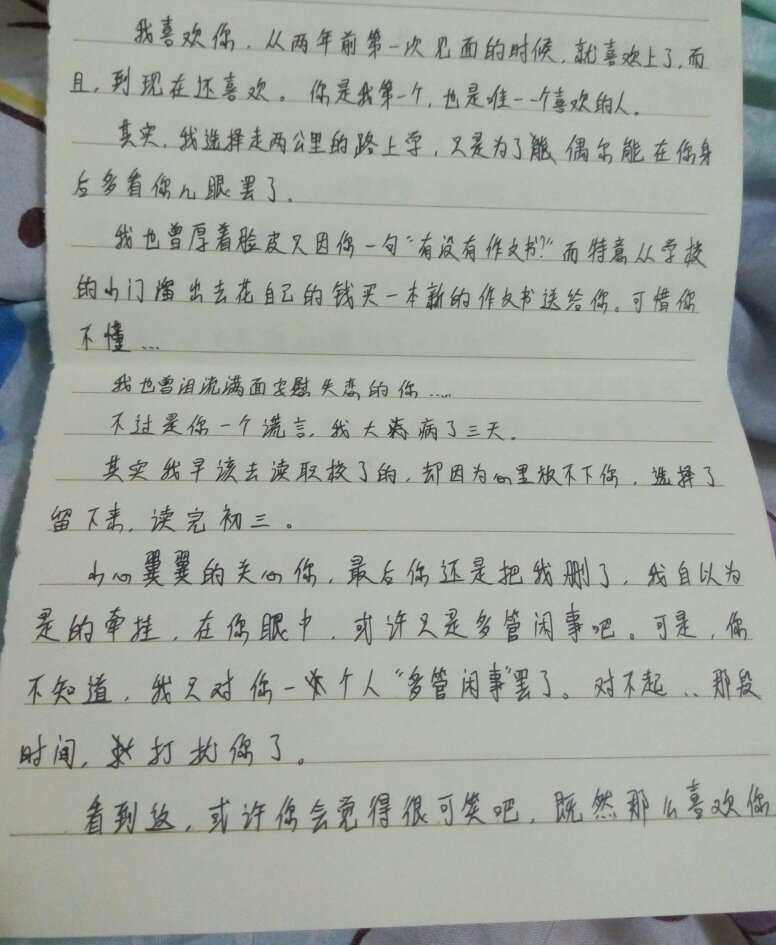 我喜欢你，从两年前第一次见面的时候，就喜欢上了，而
且，到现在还喜欢。你是我第一个，也是唯一一个喜欢的人。
其实，我选择走两公里的路上学，只是为了能偶尔能在你身
后多看你几眼罢了。
我也曾厚着脸皮只因你一句“有没有作文书？”而特意从学校
的小门溜出去花自己的钱买一本新的作文书送给你。可惜你
不懂...
我也曾泪流满面安慰失恋的你.....
不过是你一个谎言，我大病了三天。
其实我早该去读职校了的，却因为心里放不下你，选择了
留下来，读完初三。
小心翼翼的关心你，最后你还是把我删了，我自以为
是的牵挂，在你眼中，或许只是多管闲事吧。可是，你
不知道，我只对你一个人“多管闲事”罢了。对不起...那段
时间，打扰你了。
看到这，或许你会觉得很可笑吧，既然那么喜欢你